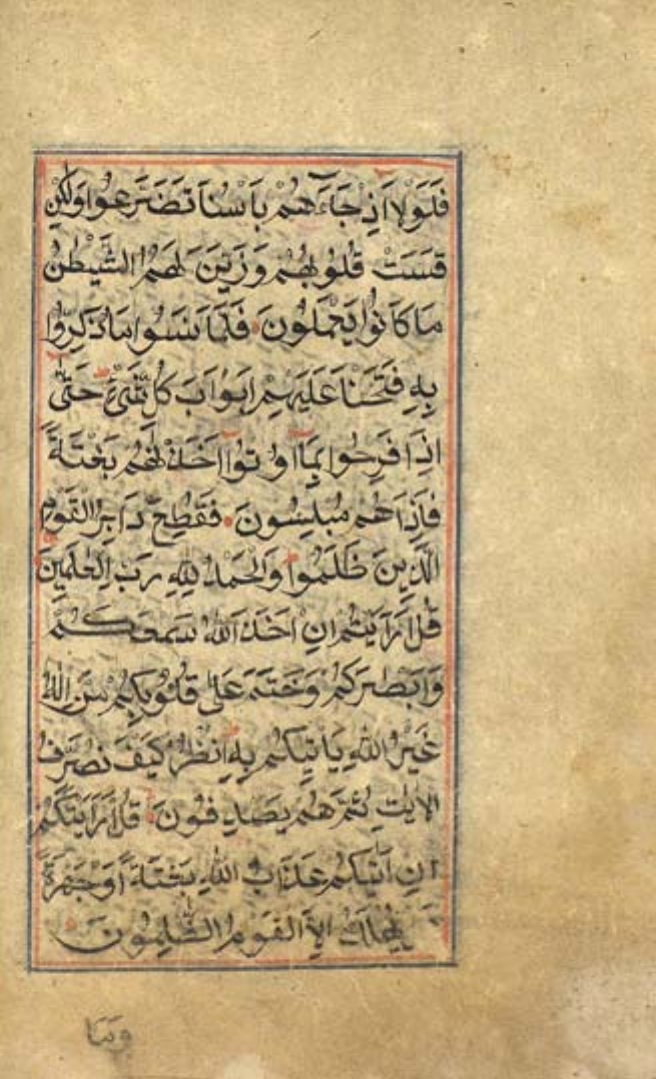 فَلَوْلَا اِذْ جَاءَهُمْ بَاْسُنَا تَضَرَّعُوا وَلٰكِنْ
قَسَتْ قُلُوبُهُمْ وَزَيَّنَ لَهُمُ الشَّيْطٰنُ
مَا كَانُوا يَعْمَلُونَ فَلَمَّا نَسُوا مَا ذُكِّرُوا
بِهِ فَتَحْنَا عَلَيْهِمْ اَبْوَابَ كُلِّ شَيْءٍ حَتّٰى
اِذَا فَرِحُوا بِمَا اُوتُوا اَخَذْنٰهُمْ بَغْتَةً
فَاِذَا هُمْ مُبْلِسُونَ فَقُطِعَ دَابِرُ الْقَوْمِ
الَّذِينَ ظَلَمُوا وَالْحَمْدُ لِلّٰهِ رَبِّ الْعٰلَمِينَ
قُلْ اَرَاَيْتُمْ اِنْ اَخَذَ اللّٰهُ سَمْعَكُمْ
وَاَبْصٰرَكُمْ وَخَتَمَ عَلٰى قُلُوبِكُمْ مَنْ اِلٰهٌ
غَيْرُ اللّٰهِ يَاْتِيكُمْ بِهِ اُنْظُرْ كَيْفَ نُصَرِّفُ
الْاٰيٰتِ ثُمَّ هُمْ يَصْدِفُونَ قُلْ اَرَاَيْتَكُمْ
اِنْ اَتٰيكُمْ عَذَابُ اللّٰهِ بَغْتَةً اَوْ جَهْرَةً
يُهْلَكُ اِلَّا الْقَوْمُ الظّٰلِمُونَ
وَمَا